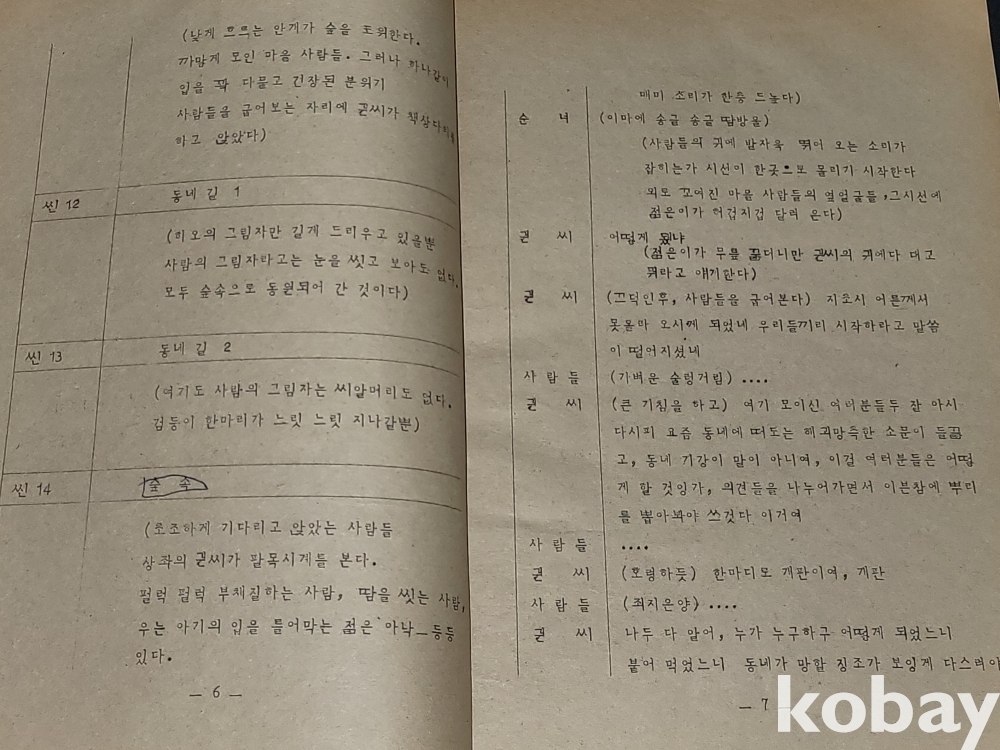 (낮게 흐르는 안개가 숲을 포위한다.
까맣게 모인 마을 사람들. 그러나 하나같이
입을 꽉 다물고 긴장된 분위기
사람들을 굽어보는 자리에 권씨가 책상다리를
하고 앉았다)
씬 12 동네 길 1
(가오의 그림자만 길게 드리우고 있을뿐
사람의 그림자라고는 눈을 씻고 보아도 없다.
모두 숲속으로 동원되어 간 것이다)
씬 13 동네 길 2
(여기도 사람의 그림자는 씨알머리도 없다.
검둥이 한마리가 느릿 느릿 지나갈뿐)
씬 14 숲 속
(초조하게 기다리고 앉았는 사람들
상좌의 권씨가 팔목시계들 본다.
펄럭 펄럭 부채질하는 사람, 땀을 씻는 사람,
우는 아기의 입을 틀어막는 젊은 아낙_등등
있다.
— 6 —
매미 소리가 한층 드높다)
순 녀 (이마에 송글 송글 땀방울)
(사람들의 귀에 발자욱 뛰어 오는 소리가
잡히는가 시선이 한곳으로 몰리기 시작한다
외로 꼬여진 마을 사람들의 옆얼굴들, 그시선에
젊은이가 허겁지겁 달려 온다)
권 씨 어떻게 됐냐
(젊은이가 무릎 꿇더니만 권씨의 귀에다 대고
뭐라고 얘기한다)
권 씨 (끄덕인후, 사람들을 굽어본다) 지초시 어른께서
못올라 오시게 되었네 우리들끼리 시작하라고 말씀
이 떨어지셨네
사 람 들 (가벼운 술렁거림) ....
권 씨 (큰 기침을 하고) 여기 모이신 여러분들두 잘 아시
다시피 요즘 동네에 떠도는 해괴망측한 소문이 들끓
고, 동네 기강이 말이 아니여, 이걸 여러분들은 어떻
게 할 것잉가, 의견들을 나누어가면서 이븐참에 뿌리
를 뽑아봐야 쓰것다 이거여
사 람 들 ....
권 씨 (호령하듯) 한마디로 개판이여, 개판
사 람 들 (죄지은양) ....
권 씨 나두 다 말어, 누가 누구하구 어떻게 되었느니
붙어 먹었느니 동네가 망할 징조가 보잉게 다스려야
— 7 —
kobay